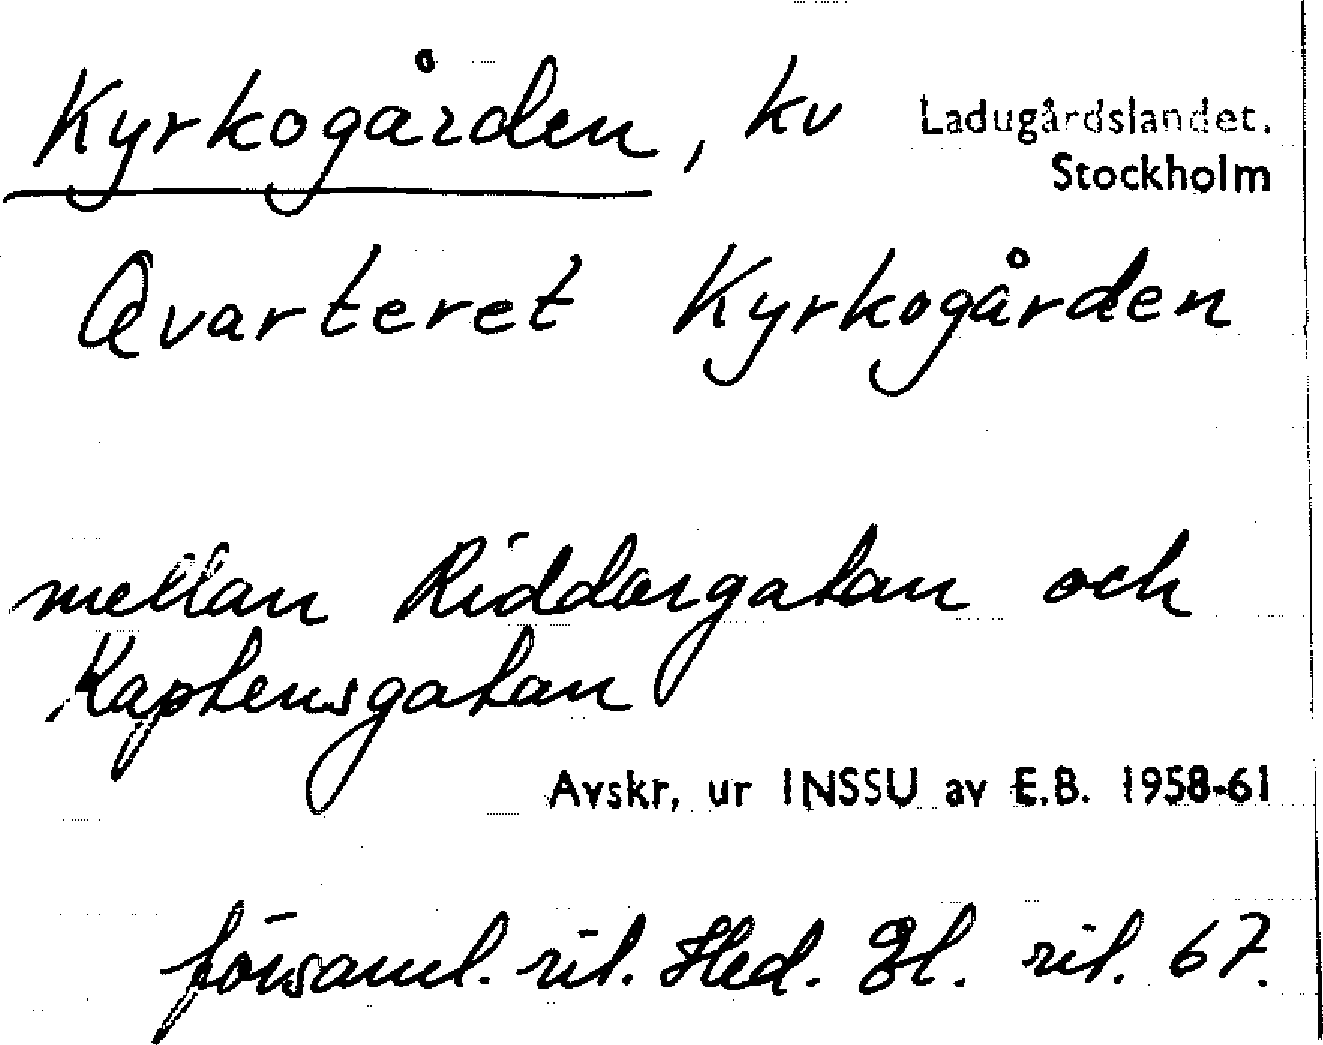 Kyrkogården, kv Ladugårdslandet.
Stockholm
Qvarteret Kyrkogården
mellan Riddargatan och
Kaptensgatan
Avskr. ur INSSU av E.B. 1958-61
församl. ril. Hed. Gl. ril. 67.